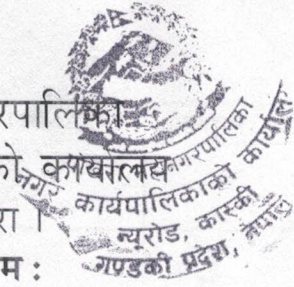 रपालिका
को कार्यालय
रा ।
म :
नगरपालिका
नगर कार्यपालिकाको कार्यालय
न्यूरोड, कास्की
गण्डकी प्रदेश, नेपाल